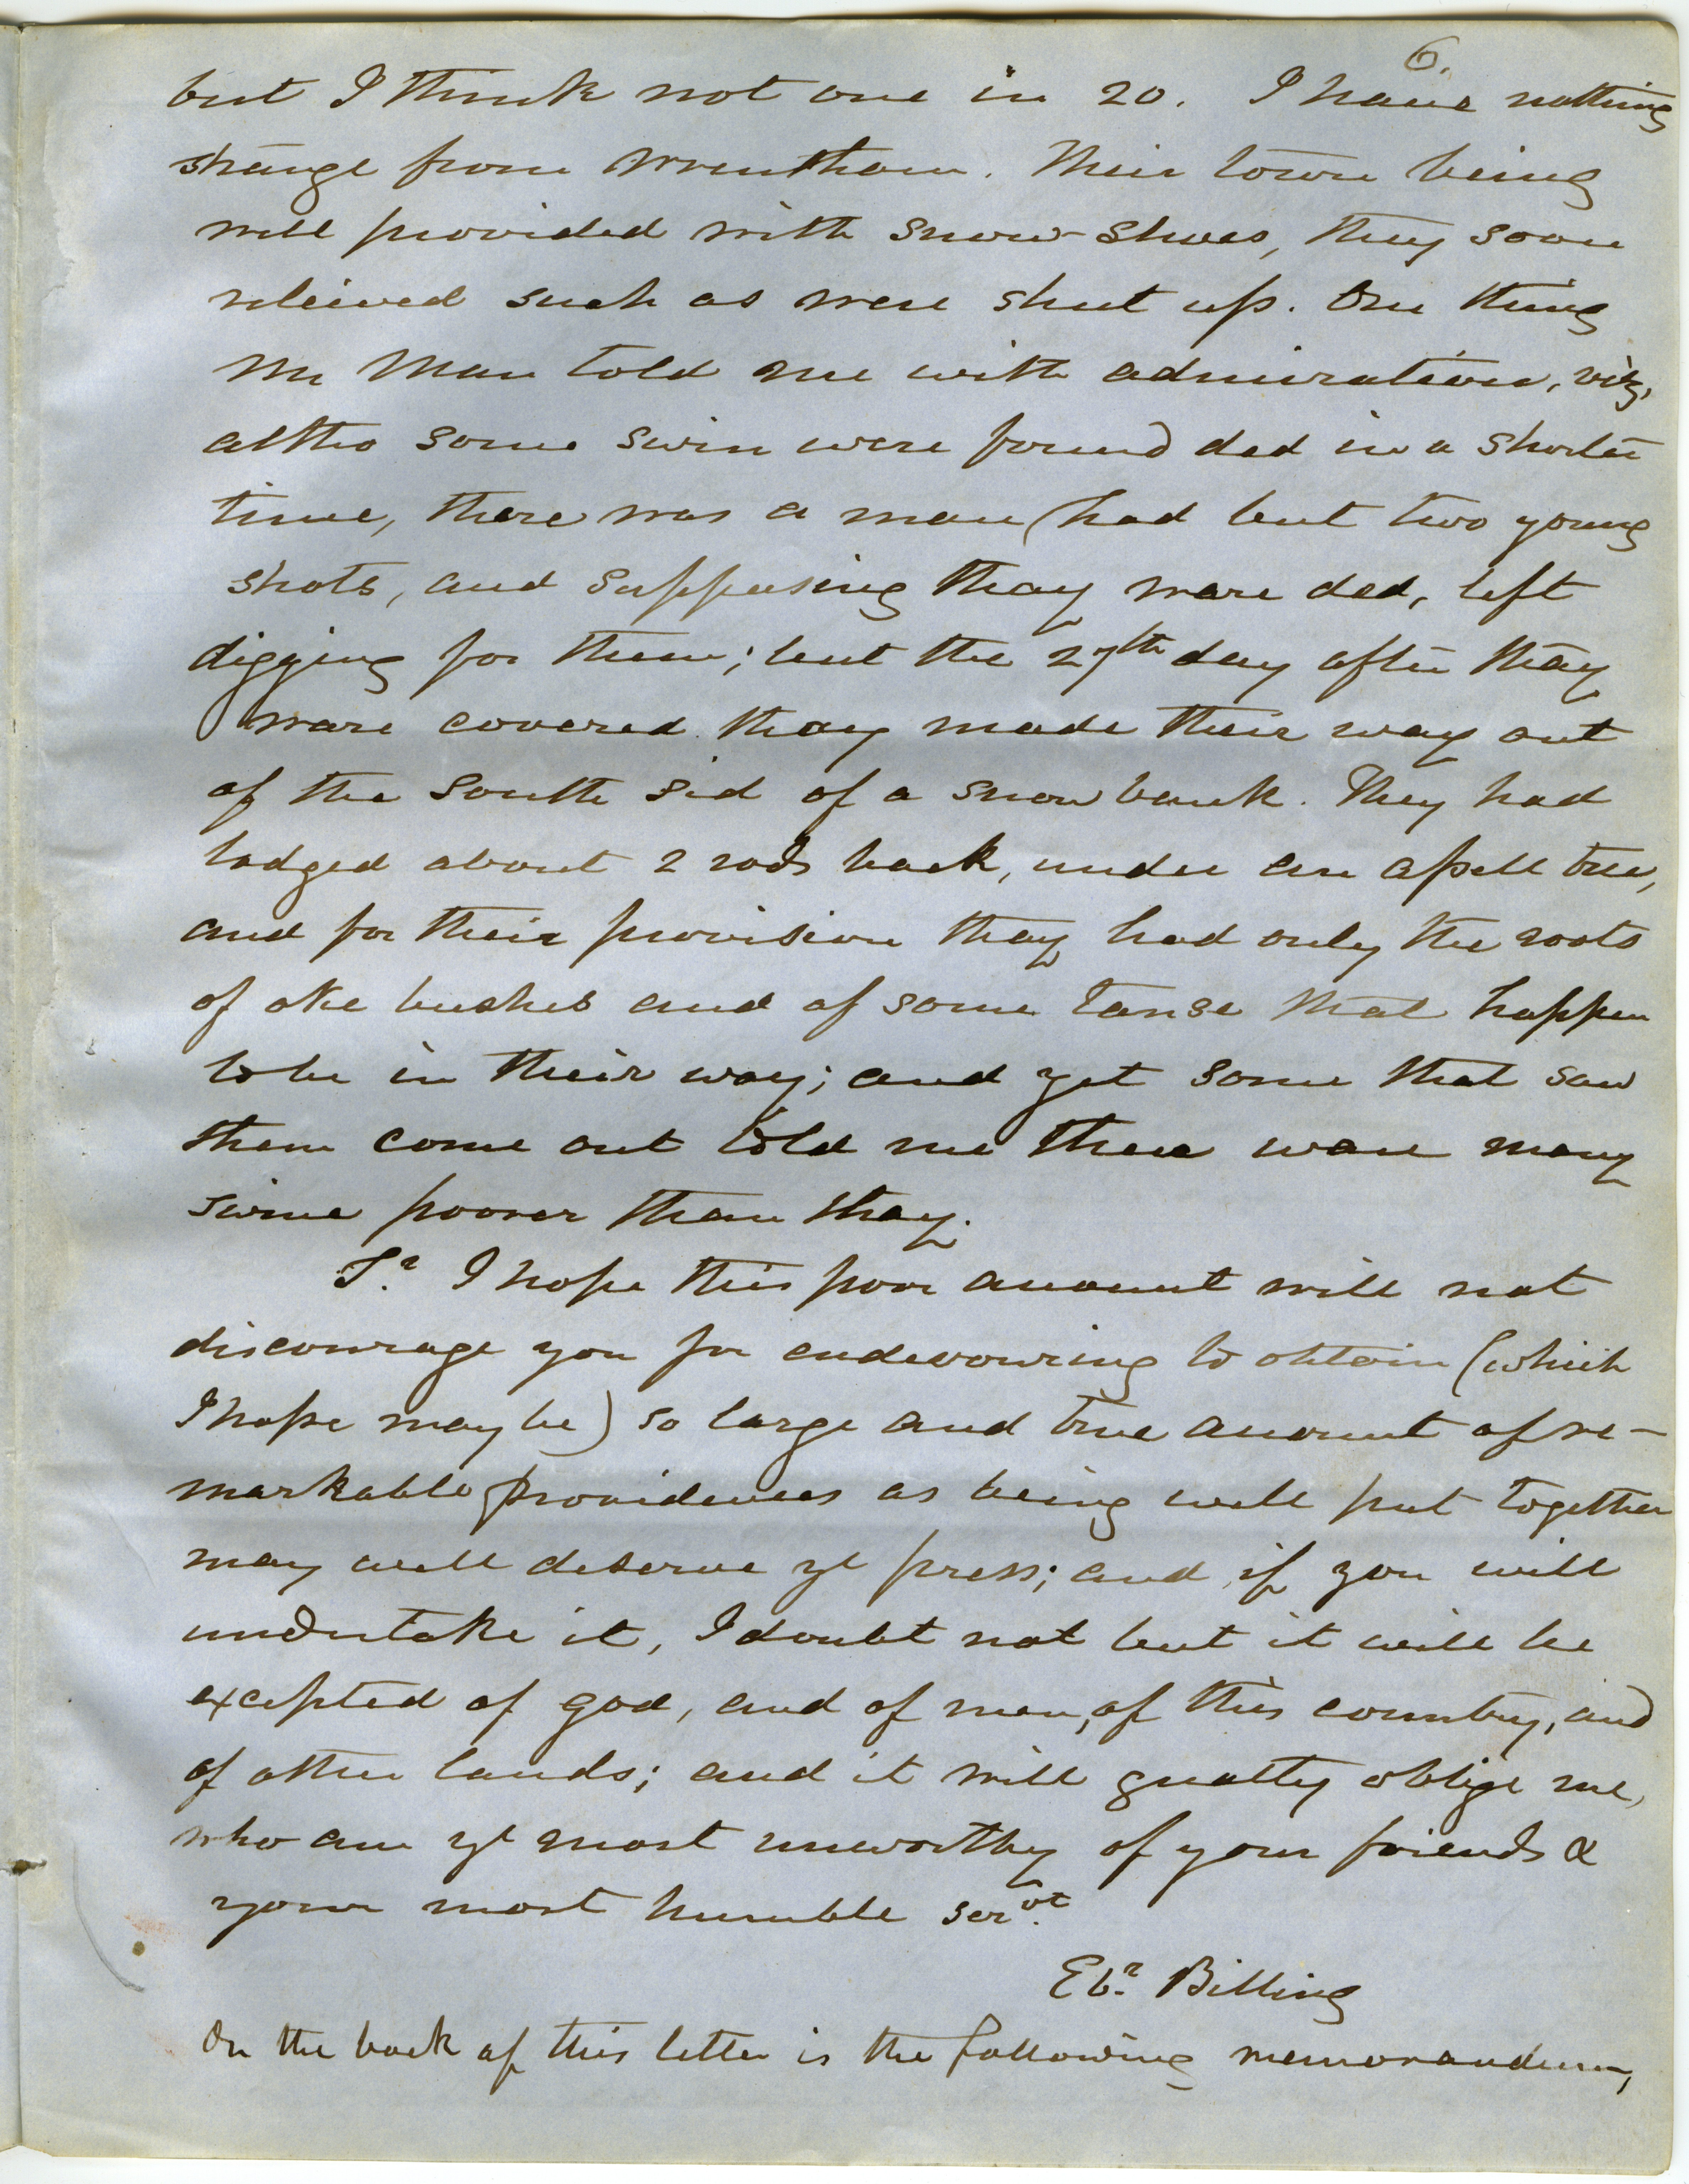 6.
but I think not one in 20. I have nothing
strange from Wrentham. Their town being
well provided with snow-shoes, they soon
releived such as were shut up. One thing
Mr Man told me with admiration, viz,
altho some swin were found ded in a shorter
time, there was a man had but two young
shots, and supposing thay ware ded, left
digging for them; but the 27th day after thay
ware covered thay made their way out
of the south sid of a snow bank. They had
lodged about 2 rods back, under an apell tree,
and for their provision thay had only the roots
of oke bushes and of some tanse that happen
to be in their way; and yet some that saw
them come out told me there ware many
swine poorer than thay.
Sr. I hope this poor account will not
discourage you for endevouring to obtain (which
I hope may be) so large and true account of re-
markable providences as being well put together
may well deserve ye press; and if you will
undertake it, I doubt not but it will be
excepted of god, and of men, of this country, and
of other lands; and it will greatly oblige me,
who am ye most unworthy of your friends &
your most humble servt.
Ebr. Billing
On the back of this letter is the following memorandum,